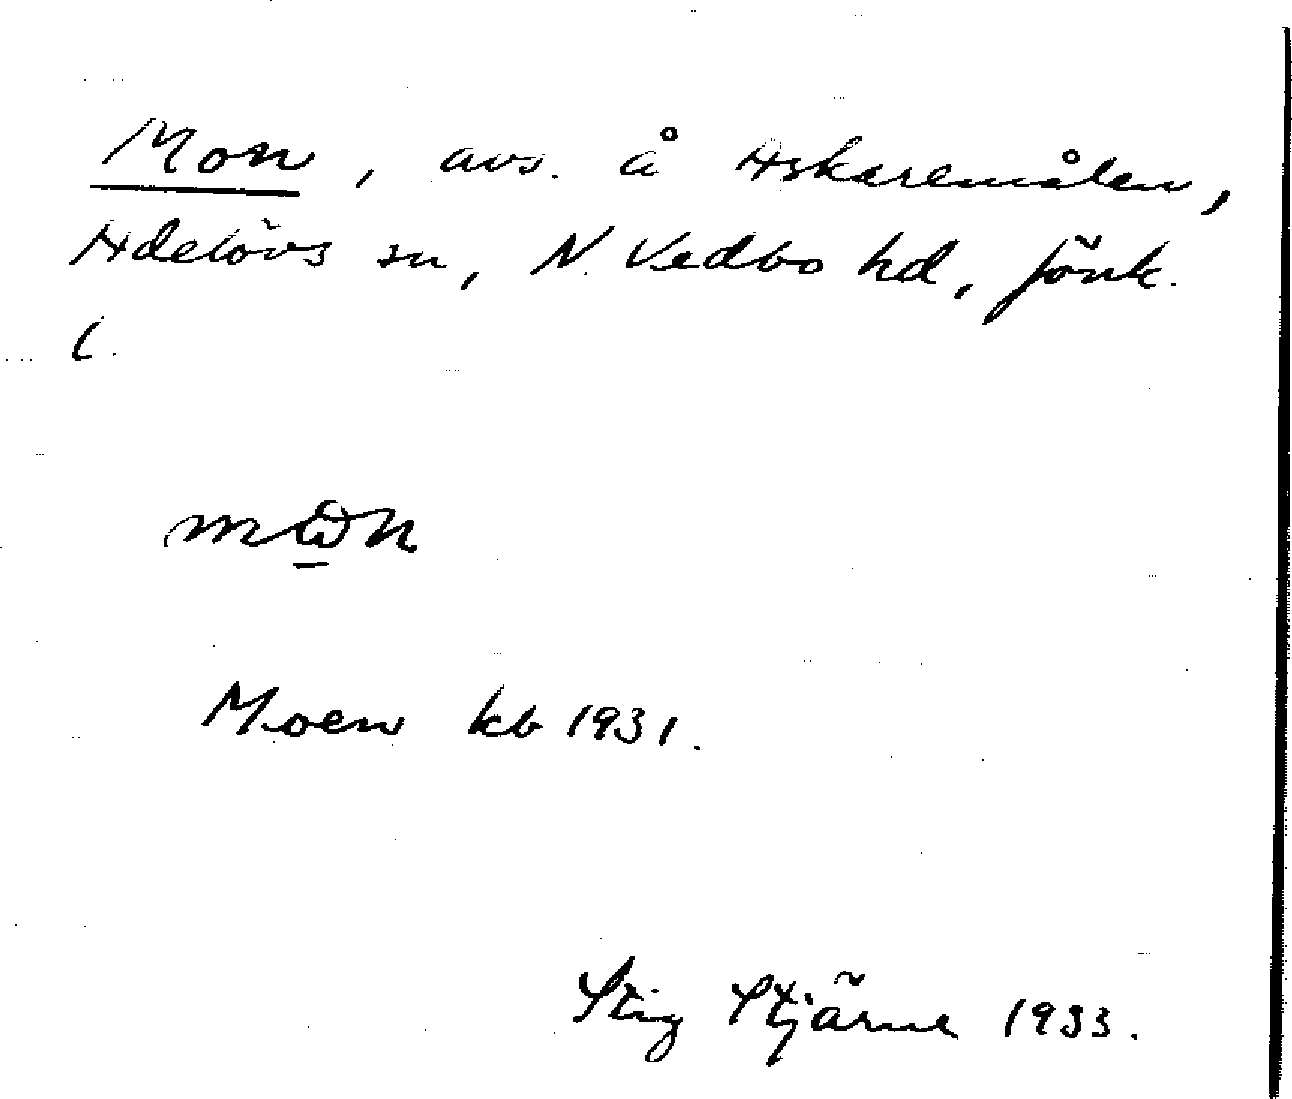 Mon, avs. å Askaremålen,
Adelövs sn, N. Vedbo hd, Jönk.
l.
Moen kb 1931.
Stig Stjärne 1933.